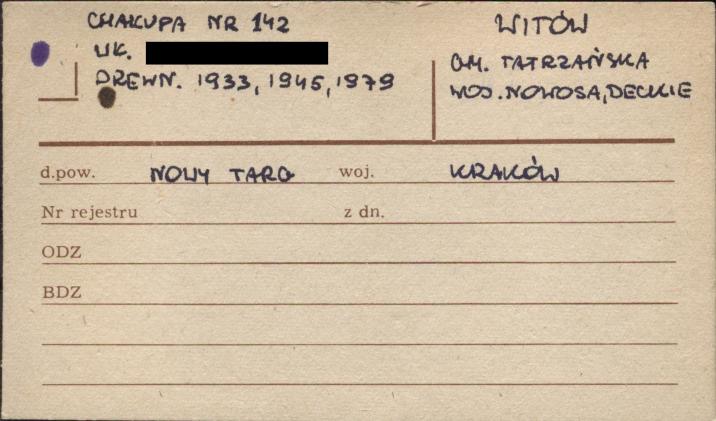 CHAŁUPA NR 142
WŁ.
DREWN. 1933, 1945, 1979
WITÓW
GM. TATRZAŃSKA
WOJ. NOWOSĄDECKIE
d.pow. NOWY TARG woj. KRAKÓW
Nr rejestru z dn.
ODZ
BDZ